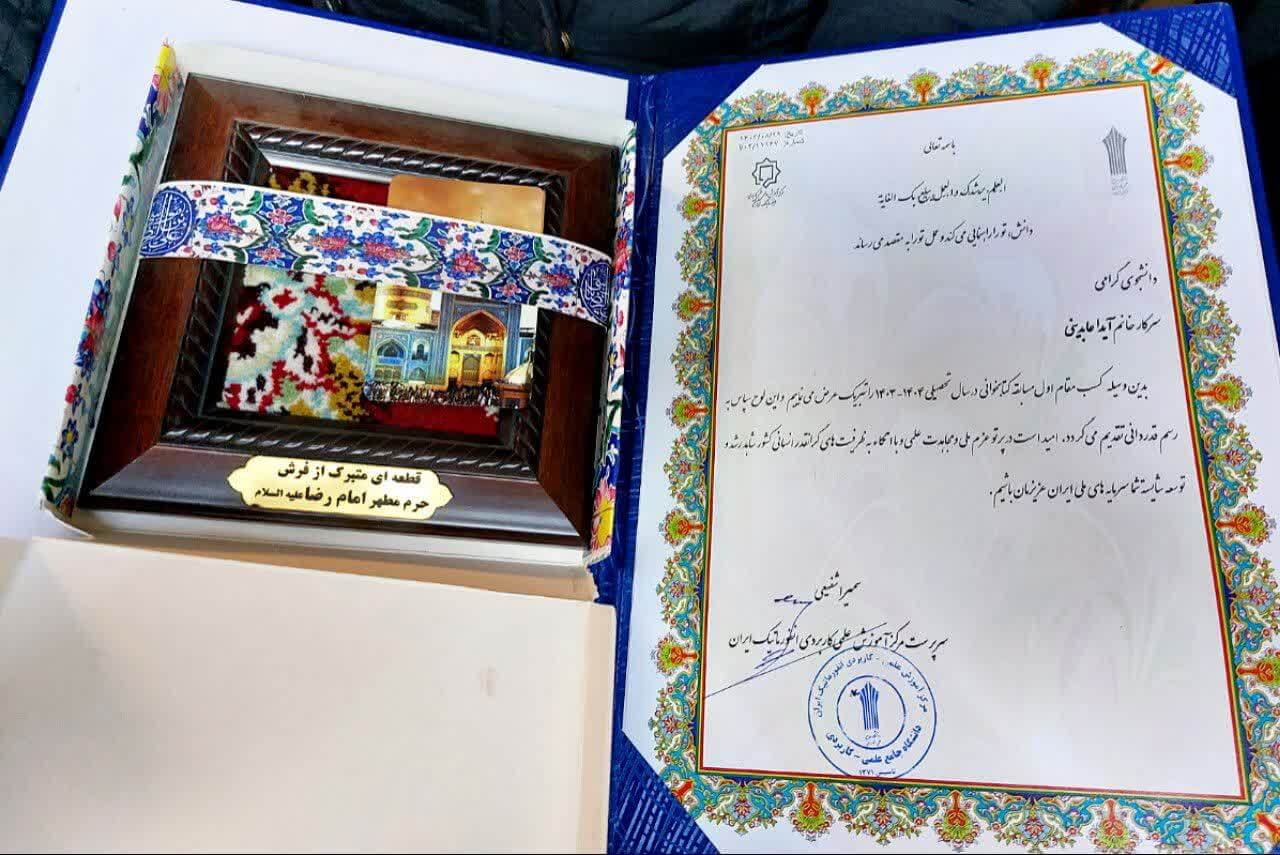 قطعه ای متبرک از فرش
حرم مطهر امام رضا علیه السلام
باسمه تعالی
تاریخ: ۱۴۰۳/۰۸/۲۹
العلم یرشدک و العمل یبلغ بک الغایة
دانش، تو را راهنمایی می کند و عمل تو را به مقصد می رساند
دانشجوی گرامی
سرکار خانم آیدا عابدینی
بدین وسیله کسب مقام اول مسابقه کتابخوانی در سال تحصیلی ۱۴۰۴-۱۴۰۳ را تبریک عرض می نماییم و این لوح سپاس به
رسم قدردانی تقدیم می گردد. امید است در پرتو عزم ملی و مجاهدت علمی و با اتکاء به ظرفیت های گرانقدر انسانی کشور شاهد رشد و
توسعه شایسته شما سرمایه های ملی ایران عزیزمان باشیم.
سمیرا شفیعی
سرپرست مرکز آموزش علمی کاربردی انفورماتیک ایران
مرکز آموزش علمی - کاربردی انفورماتیک ایران
دانشگاه جامع علمی - کاربردی
تاسیس ۱۳۷۱